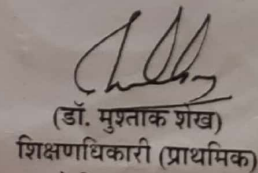 (डॉ. मुश्ताक शेख)
शिक्षणाधिकारी (प्राथमिक)